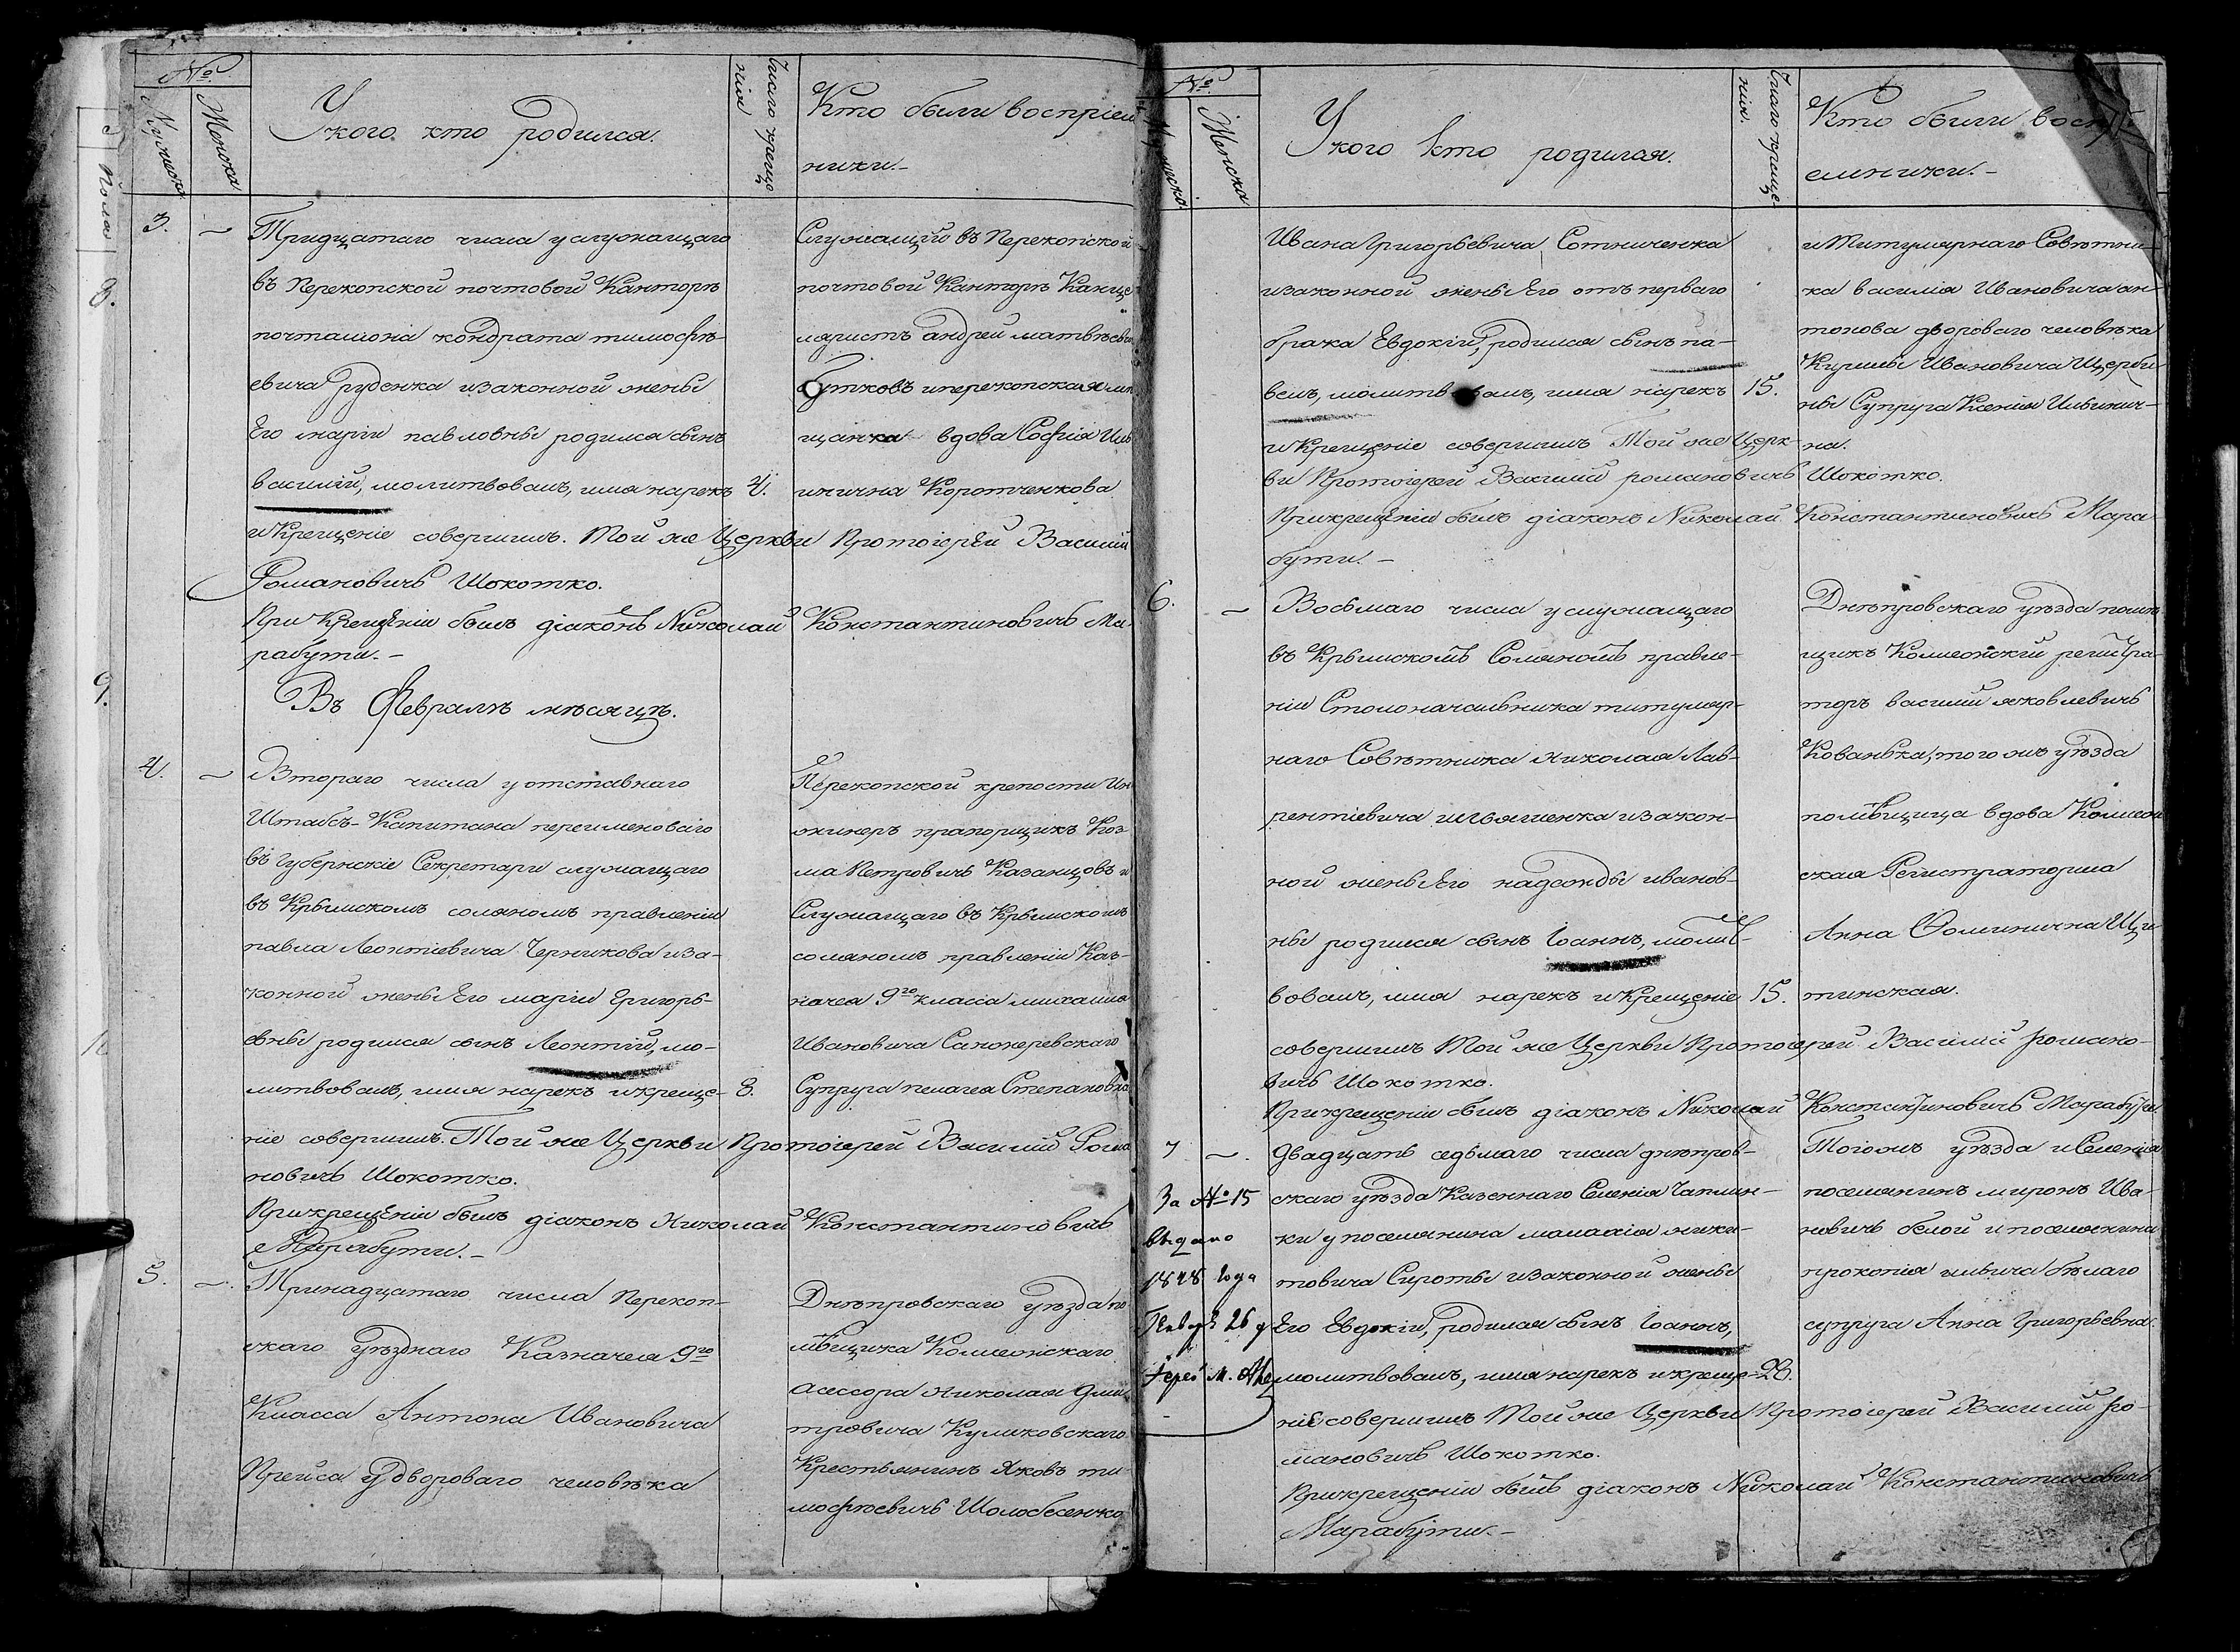 №
Мужеска
Женска
У кого кто родился.
Число креще
нія
Кто были воспріем
ники.-
3.
Тридцатаго числа у служащаго
въ Перекопской почтовой Канторѣ
почталіона кондрата тимофѣ-
евича руденка изаконной жены
Его маріи павловны родился сынъ
василій, молитвовалъ, имя нарекъ
и Крещеніе совершилъ. Той же Церкви Протоіерей Василій
Романовичъ Шокотко.
При Крещеніи былъ діаконъ Николай Константиновичъ Ма-
рабути.-
4.
Служащій въ Перекопской
почтовой Канторѣ Канце
ляристъ андрей матвѣеви
бутковъ и перекопская мѣ
щанка вдова Софія Иль
инична Коротченкова
Въ Февралѣ мѣсяцѣ.
4.
Втораго числа у отставнаго
Штабсъ-Капитана переименованаго
въ Губернскіе Секретари служащаго
въ Крымскомъ соляномъ правленіи
павла Леонтіевича Черникова иза-
конной жены Его маріи Григорь-
евны родился сынъ Леонтій, мо-
литвовалъ, имя нарекъ и креще-
ніе совершилъ. Той же Церкви Протоіерей Василій Рома
новичъ Шокотко.
При крещеніи былъ діаконъ Николай Константиновичъ
Марабути.-
8.
Перекопской крепости Ин
жинеръ прапорщикъ Коз
ма Петровичъ Казанцовъ и
Служащаго въ Крымскомъ
соляномъ правленіи Каз-
начея 9го класса михаила
Ивановича
Супруга пелагея Степановна
5.
Тринадцатаго числа Перекоп-
скаго уѣзднаго Казначея 9го
Класса Антона Ивановича
Прейса у двороваго человѣка
Днѣпровскаго уѣзда по
мѣщика Коллежскаго
Асессора николая дми
тріевича Куликовскаго
Крестьянинъ Яковъ ти
мофѣевичъ Шолобесенко
№
Мужеска
Женска
У кого кто родился.
Число креще-
нія.
Кто были воспрі-
емники.-
Ивана Григорьевича Сотниченка
изаконной жены Его отъ перваго
брака Евдокіи, родился сынъ па-
велъ, молитвовалъ, имя нарекъ
и Крещеніе совершилъ Той же Церк-
ви Протоіерей Василій романовичъ Шокотко.
При крещеніи былъ діаконъ Николай Константиновичъ Мара
бути.-
15.
и Титулярнаго Совѣтни-
ка василія Ивановича ан-
тонова двороваго человѣка
Ивановича Щерби
ны Супруга Ксенія Ильинич-
на.
6.
Восьмаго числа у служащаго
въ Крымскомъ Соляномъ правле-
ніи Столоначальника титуляр-
наго Совѣтника николая Лав-
рентіевича изакон-
ной жены Его надежды иванов-
ны родился сынъ Іоаннъ, молит-
вовалъ, имя нарекъ и Крещеніе
совершилъ Той же Церкви Протоіерей Василій Романо-
вичъ Шокотко.
При крещеніи былъ діаконъ Николай Константиновичъ Марабути
15.
Днѣпровскаго уѣзда помѣ
щикъ Коллежскій регистра-
торъ василій яковлевичъ
Кованька, того жъ уѣзда
помѣщица вдова Коллеж
ская Регистраторша
Анна Фоминична Щге
тинская.
7
За № 15
выдано
1828 года
Генваря 26 д
Іерей М.
Двадцать седьмаго числа днѣпров-
скаго уѣзда Казеннаго Селенія Чаплин-
ки у поселянина малахія ники-
товича Сироты изаконной жены
Его Евдокіи, родился сынъ Іоаннъ,
молитвовалъ, имя нарекъ и креще-
ніе совершилъ Той же Церкви Протоіерей Василій Ро-
мановичъ Шокотко.
При крещеніи былъ діаконъ Николай Константиновичъ
Марабути.-
28.
Того жъ уѣзда и Селенія
поселянинъ миронъ Ива-
новичъ белой и поселянина
прокопія ильича бѣлаго
супруга Анна Григорьевна.